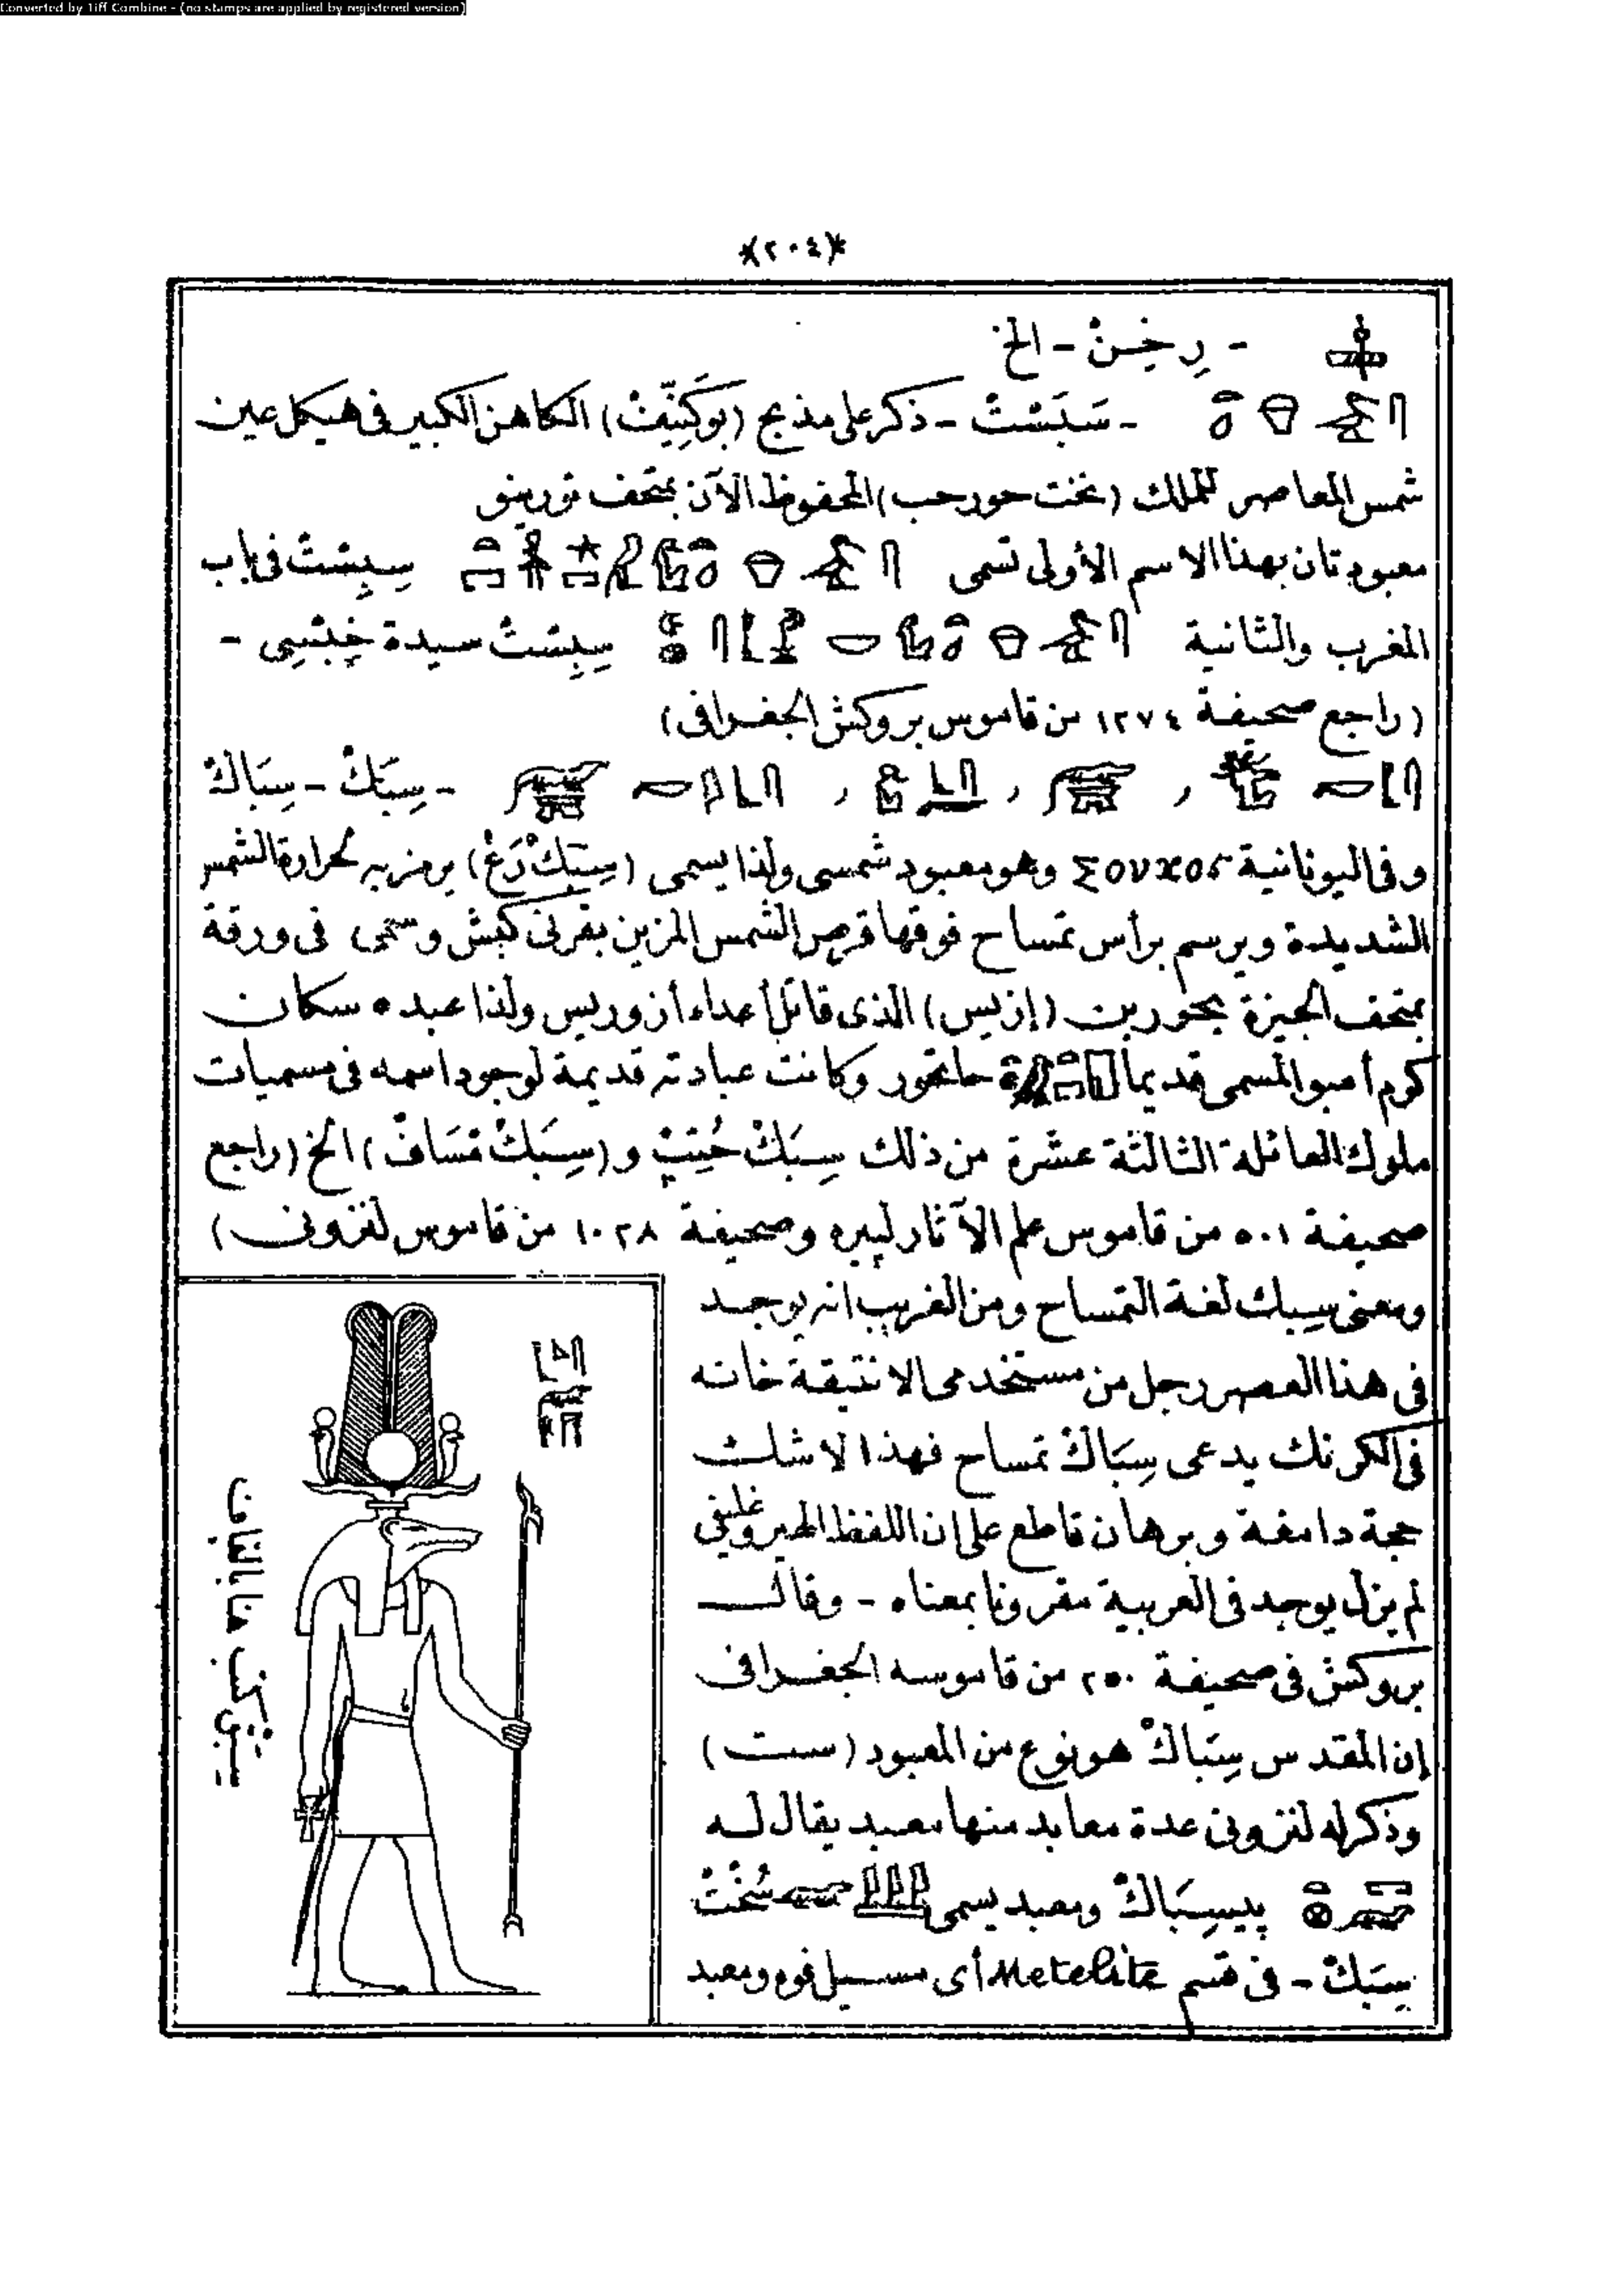 Converted by Tiff Combine - (no stamps are applied by registered version)
*(٢٠٤)*
- رِخِنْ - الخ
- سَبَشتْ - ذكر على مذبح (بوكَنِّفْ) الكاهن الكبير فى هيكل عين
شمس المعاصر للملك (نخت حورحب) المحفوظ الآن بمتحف تورينو
معبودتان بهذا الاسم الأولى تسمى سِبِشتْ فى باب
المغرب والثانية سِبِشتْ سيدة خِبْتِسِى -
(راجع صحيفة ١٢٧٤ من قاموس بروكش الجغرافى)
- سِبَكْ - سِبَاكْ
وفى اليونانية Σουχος وهو معبود شمسى ولذا يسمى (سِبَكْ رَعْ) يرمز به لحرارة الشمس
الشديدة ويرسم برأس تمساح فوقها قرص الشمس المزين بقرنى كبش وسمى فى ورقة
بمتحف الجيزة بحور بن (إزيس) الذى قاتل أعداء أزوريس ولذا عبده سكان
كوم أمبو المسمى قديما حاتحور وكانت عبادته قديمة لوجود اسمه فى مسميات
ملوك العائلة الثالثة عشرة من ذلك سِبَكْ حُتِبْ و (سِبَكْ مَسَافْ) الخ (راجع
صحيفة ٥٠١ من قاموس علم الآثار لپيره وصحيفة ١٠٢٨ من قاموس لنزونى)
ومعنى سِبك لغة التمساح ومن الغريب انه يوجد
فى هذا العصر رجل من مستخدمى الانتيقة خانه
فى الكرنك يدعى سِبَاكْ تمساح فهذا لاشك
حجة دامغة وبرهان قاطع على ان اللفظ الهيروغليفى
لم يزل يوجد فى العربية مقرونا بمعناه - وقال
بروكش فى صحيفة ٢٥٠ من قاموسه الجغرافى
إن المقدس سِبَاكْ هو نوع من المعبود (ست)
وذكر له لنزونى عدة معابد منها معبد يقال له
پيسِبَاكْ ومعبد يسمى سُخْتْ
سِبَكْ - فى قسم Metelite أى مسيل فوه ومعبد